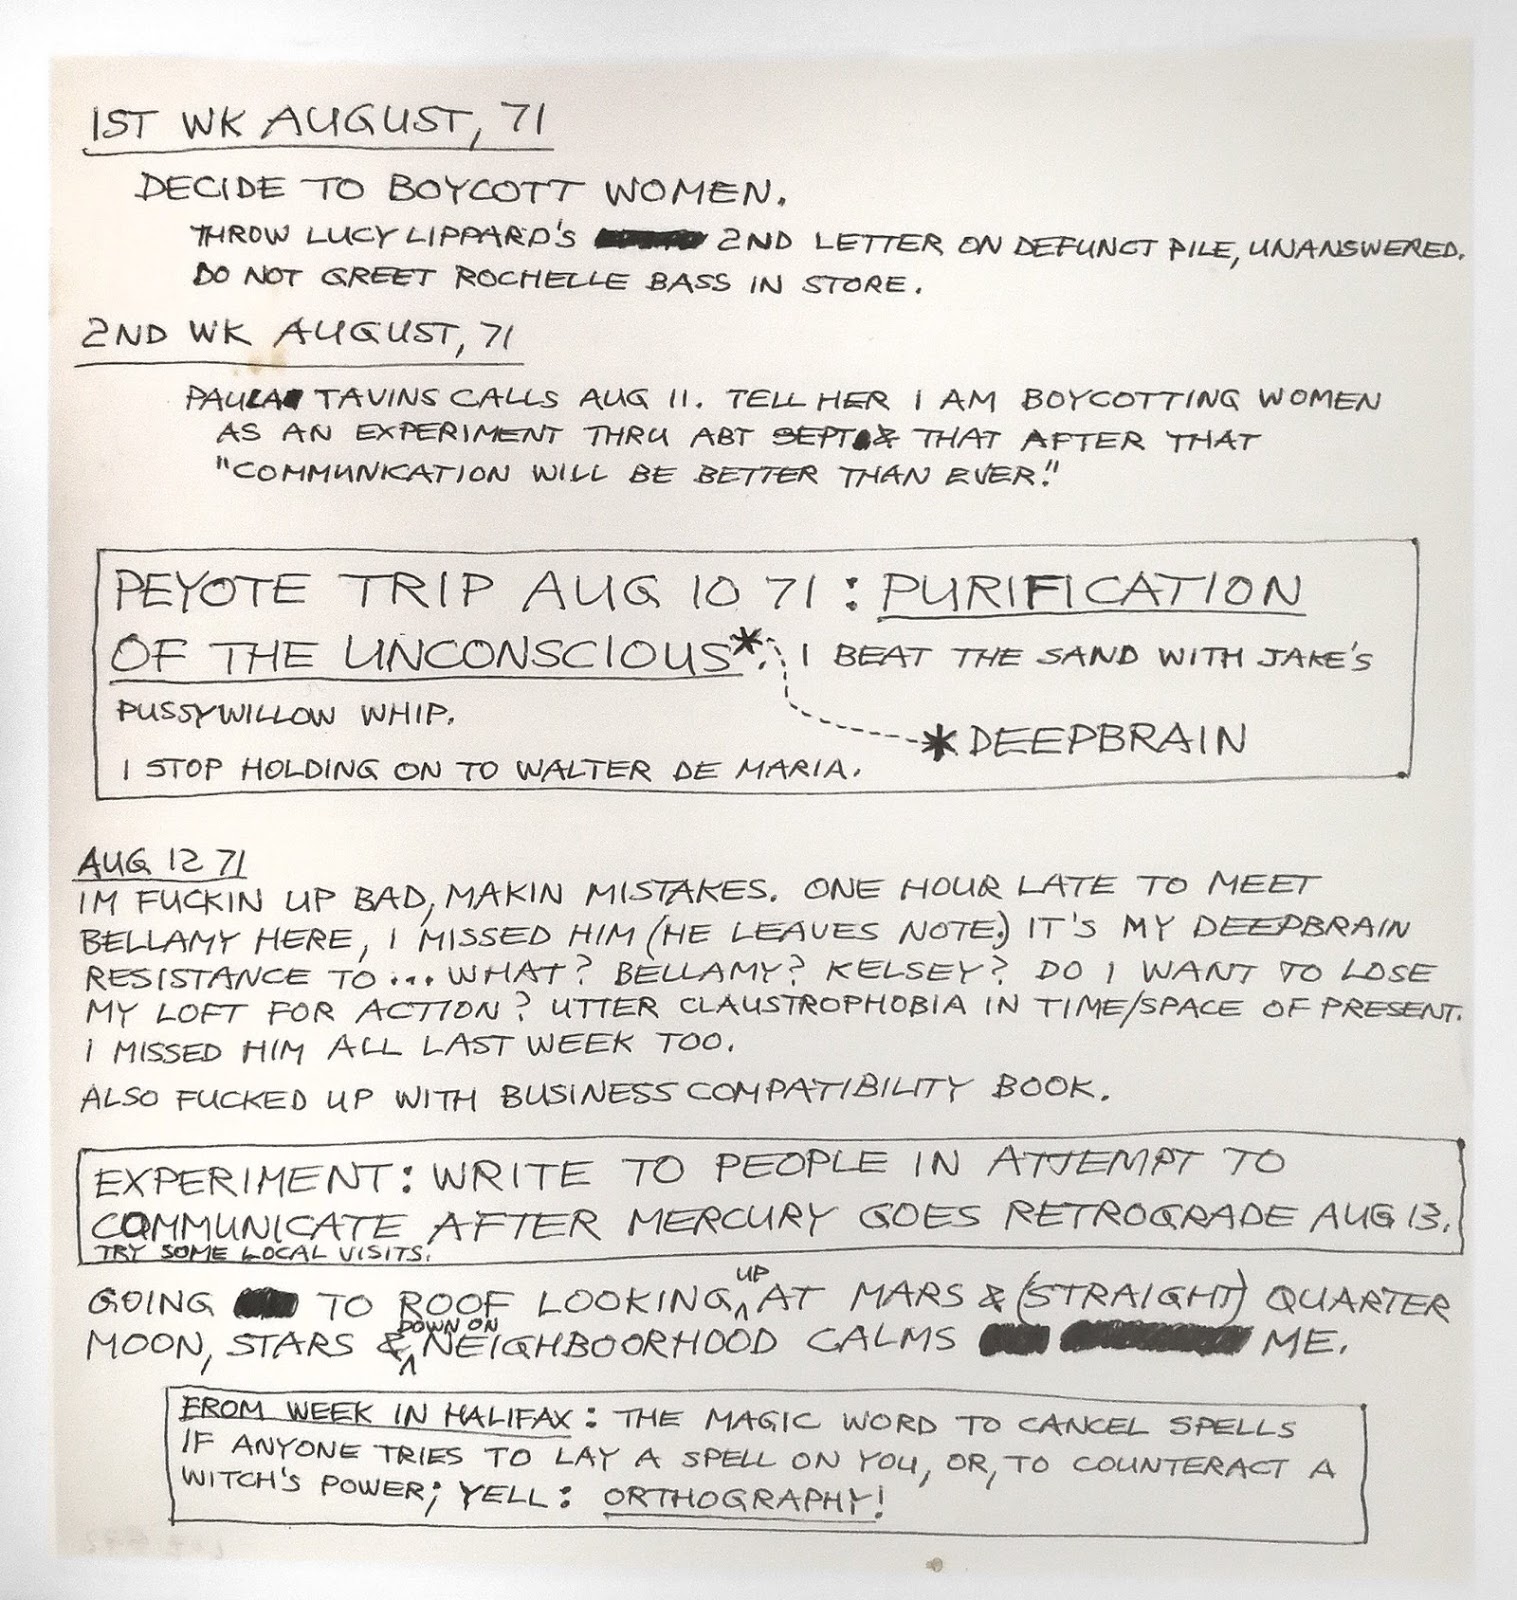 1ST WK AUGUST, 71
DECIDE TO BOYCOTT WOMEN.
THROW LUCY LIPPARD'S 2ND LETTER ON DEFUNCT PILE, UNANSWERED.
DO NOT GREET ROCHELLE BASS IN STORE.
2ND WK AUGUST, 71
PAULA TAVINS CALLS AUG 11. TELL HER I AM BOYCOTTING WOMEN
AS AN EXPERIMENT THRU ABT SEPT. & THAT AFTER THAT
"COMMUNICATION WILL BE BETTER THAN EVER."
PEYOTE TRIP AUG 10 71: PURIFICATION
OF THE UNCONSCIOUS*. I BEAT THE SAND WITH JAKE'S
PUSSYWILLOW WHIP.
* DEEPBRAIN
I STOP HOLDING ON TO WALTER DE MARIA.
AUG 12 71
IM FUCKIN UP BAD, MAKIN MISTAKES. ONE HOUR LATE TO MEET
BELLAMY HERE, I MISSED HIM (HE LEAVES NOTE.) IT'S MY DEEPBRAIN
RESISTANCE TO... WHAT? BELLAMY? KELSEY? DO I WANT TO LOSE
MY LOFT FOR ACTION? UTTER CLAUSTROPHOBIA IN TIME/SPACE OF PRESENT.
I MISSED HIM ALL LAST WEEK TOO.
ALSO FUCKED UP WITH BUSINESS COMPATIBILITY BOOK.
EXPERIMENT: WRITE TO PEOPLE IN ATTEMPT TO
COMMUNICATE AFTER MERCURY GOES RETROGRADE AUG 13.
TRY SOME LOCAL VISITS.
GOING TO ROOF LOOKING UP AT MARS & (STRAIGHT) QUARTER
MOON, STARS & DOWN ON NEIGHBOORHOOD CALMS ME.
FROM WEEK IN HALIFAX: THE MAGIC WORD TO CANCEL SPELLS
IF ANYONE TRIES TO LAY A SPELL ON YOU, OR, TO COUNTERACT A
WITCH'S POWER; YELL: ORTHOGRAPHY!